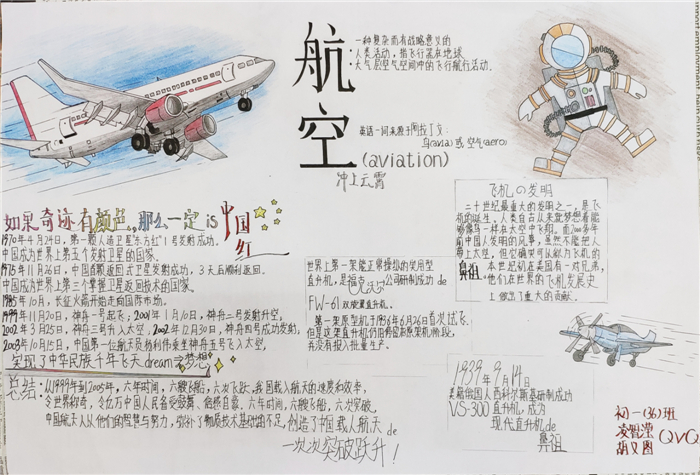 航空
(aviation)
冲上云霄
一种复杂而有战略意义的
人类活动，指飞行器在地球
大气层空气空间中的飞行航行活动。
英语一词来源于阿拉丁文：
鸟(avia)或空气(aero)
如果奇迹有颜色，那么一定is中国红
1970年4月24日，第一颗人造卫星"东方红"1号发射成功。
中国成为世界上第五个发射卫星的国家。
1975年11月26日，中国首颗返回式卫星发射成功，3天后顺利返回。
中国成为世界上第三个掌握卫星返回技术的国家。
1985年10月，长征火箭开始走向国际市场。
1999年11月20日，神舟一号起飞，2001年1月10日，神舟二号发射升空，
2002年3月25日，神舟三号升入太空，2002年12月30日，神舟四号成功发射，
2003年10月15日，中国第一位航天员杨利伟乘坐神舟五号飞入太空，
实现了中华民族千年飞天dream⇒梦想
世界上第一架能正常操纵的实用型
直升机，是福克沃沃公司研制成功de
FW-61双旋翼直升机。
第一架原型机于1936年6月26日首次试飞，
并没有投入批量生产。
飞机の发明
二十世纪最重大的发明之一，是飞
机的诞生，人类自古以来就梦想着能
够像鸟一样在太空中飞翔。而2000多年
前中国人发明的风筝，虽然不能把人
带上太空，但它确实可以称为飞机的
鼻祖。本世纪初在美国有一对兄弟，
他们在世界的飞机发展史
上做出了重大的贡献。
1939年9月14日
美籍俄国人西科尔斯基研制成功
VS-300直升机，成为
现代直升机de
鼻祖
总结：从1999年到2005年，六年时间，六艘飞船，六次飞跃，我国载人航天的速度和效率，
令世界称奇，令亿万中国人民备受鼓舞、倍感自豪，六年时间，六艘飞船，六次突破，
中国航天人从他们的智慧与努力，弥补了物质技术基础的不足，创造了中国载人航天de
一次次突破跃升！
初一(36)班
QVQ